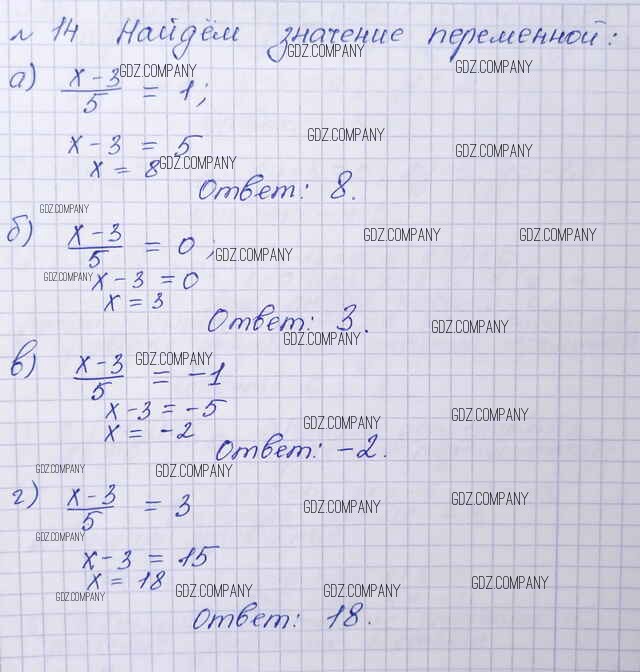 № 14 Найдём значение переменной:
GDZ.COMPANY
GDZ.COMPANY
а) x - 3 / 5 = 1;
GDZ.COMPANY
x - 3 = 5
GDZ.COMPANY
GDZ.COMPANY
x = 8
GDZ.COMPANY
Ответ: 8.
GDZ.COMPANY
б) x - 3 / 5 = 0;
GDZ.COMPANY
GDZ.COMPANY
GDZ.COMPANY
x - 3 = 0
GDZ.COMPANY
x = 3
Ответ: 3.
GDZ.COMPANY
GDZ.COMPANY
в) x - 3 / 5 = -1
GDZ.COMPANY
x - 3 = -5
GDZ.COMPANY
GDZ.COMPANY
x = -2
Ответ: -2.
GDZ.COMPANY
GDZ.COMPANY
г) x - 3 / 5 = 3
GDZ.COMPANY
GDZ.COMPANY
GDZ.COMPANY
x - 3 = 15
x = 18
GDZ.COMPANY
GDZ.COMPANY
GDZ.COMPANY
GDZ.COMPANY
Ответ: 18.